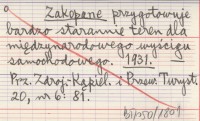 Zakopane przygotowuje
bardzo starannie teren dla
międzynarodowego wyścigu
samochodowego. 1931.
Prz. Zdroj.-Kąpiel. i Przew. Turyst.
20, nr 6: 81.